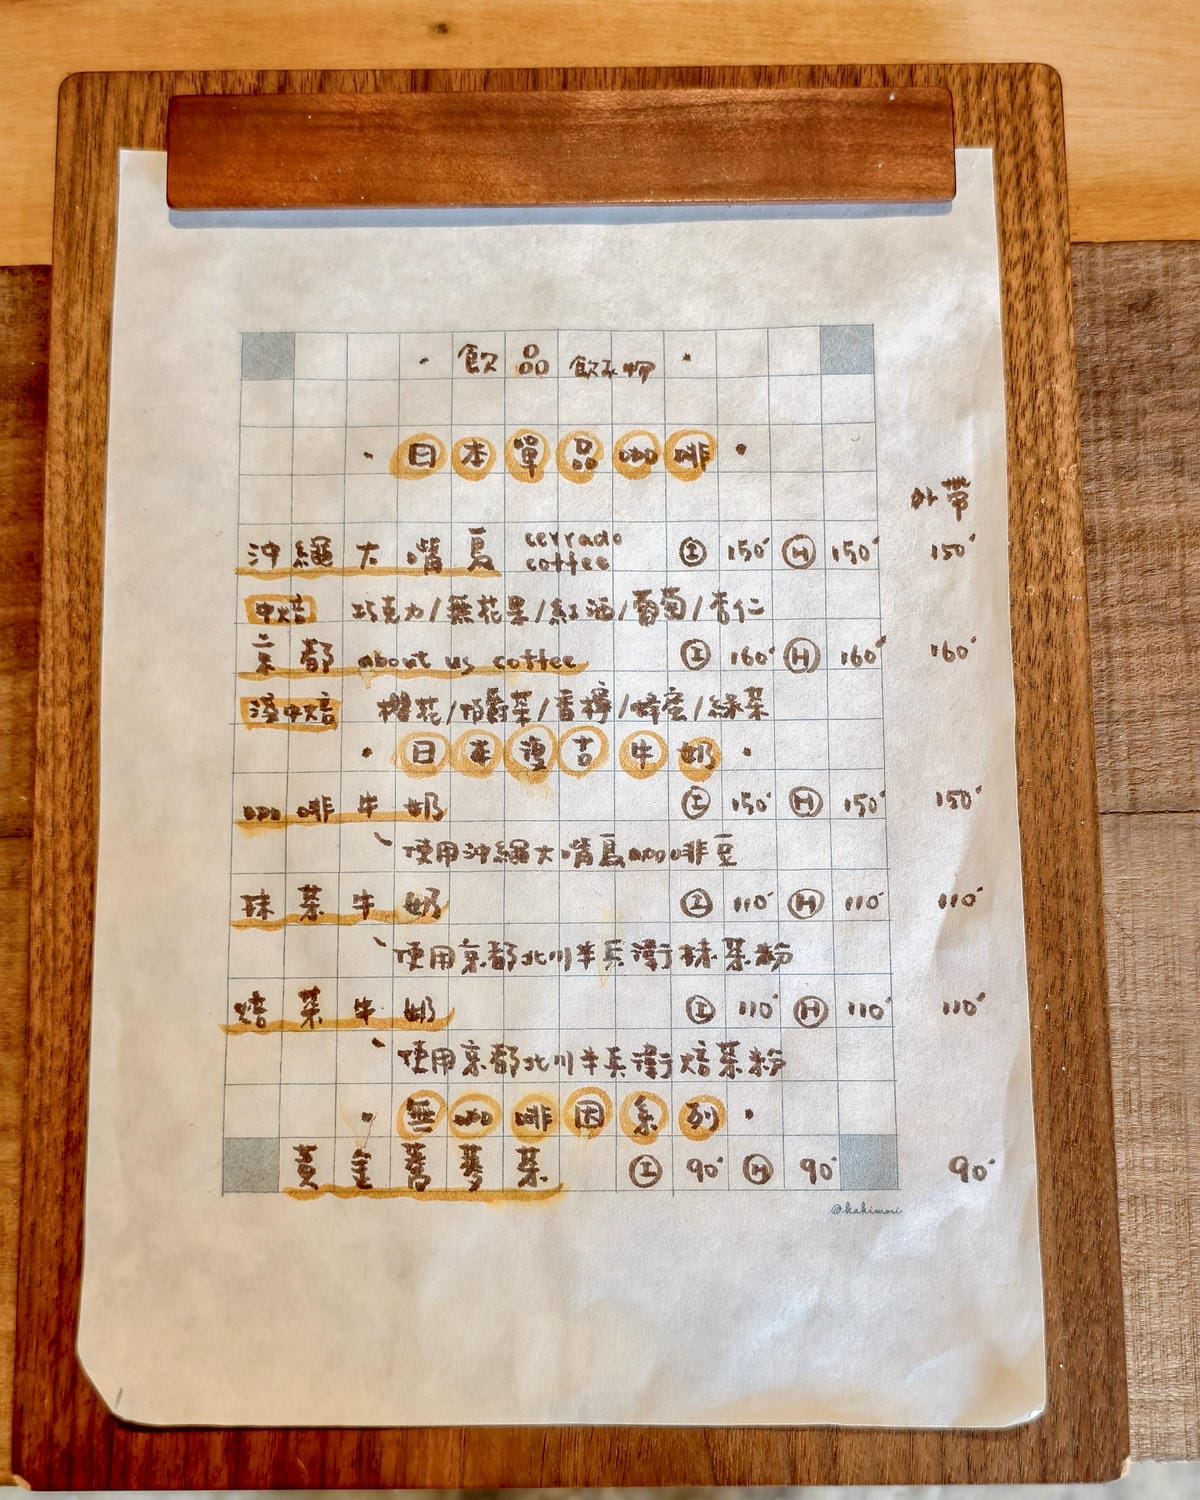 ・飲品 飲み物・
・日本單品咖啡・
外帶
沖繩大嘴鳥 cerrado coffee Ⓘ 150 Ⓗ 150 150
中焙 巧克力/無花果/紅酒/葡萄/杏仁
京都 about us coffee Ⓘ 160 Ⓗ 160 160
淺中焙 櫻花/焙爵茶/香檸/蜂蜜/綠茶
・日本濃苦牛奶・
咖啡牛奶 Ⓘ 150 Ⓗ 150 150
使用沖繩大嘴鳥咖啡豆
抹茶牛奶 Ⓘ 110 Ⓗ 110 110
使用京都北川半兵衛抹茶粉
焙茶牛奶 Ⓘ 110 Ⓗ 110 110
使用京都北川半兵衛焙茶粉
・無咖啡因系列・
黃金蕎麥茶 Ⓘ 90 Ⓗ 90 90
@kakimori